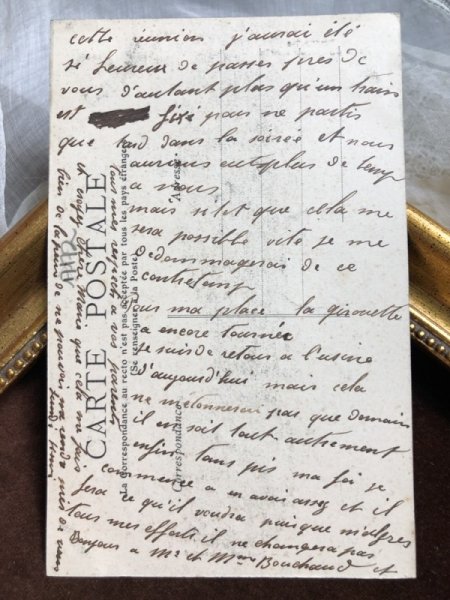 cette réunion j'aurai été
si heureux de passer pres de
vous d'autant plus qu'un train
est fixé pour ne partir
que tard dans la soirée et nous
aurions eut plus de temps
a nous
mais sitot que cela me
sera possible vite je me
dedommagerai de ce
contretemps
sur ma place la girouette
a encore tournée
je suis de retour a l'usine
d'aujourd'hui mais cela
ne m'etonnerai pas que demain
il en soit tout autrement
enfin tans pis ma foi je
commence a en avoir assez et il
fera ce qu'il voudra puisque malgres
tous mes efforts il ne changera pas
Bonjour a Mr et Mme Bouchaud et
tous mes respects a vos parents
A vous chere Marie que cela me fais
bien de la peine de ne pouvoir me rendre près de vous
CARTE POSTALE
La Correspondance au recto n'est pas acceptée par tous les pays étrangers
(Se renseigner à la Poste)
Correspondance
Adresse